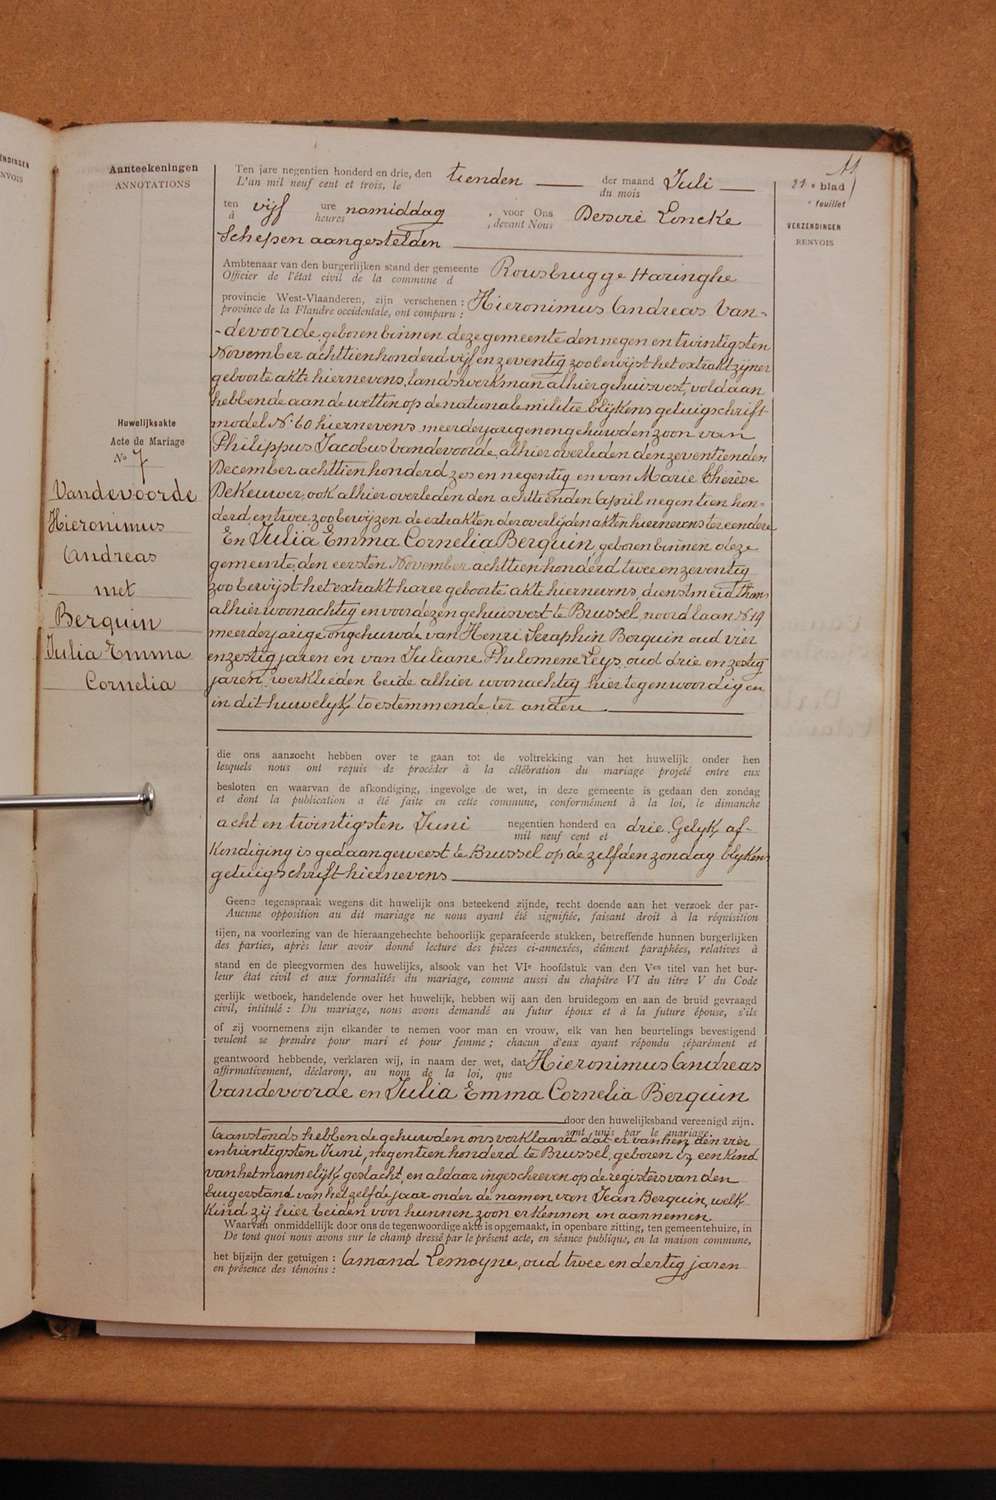 Aanteekeningen
ANNOTATIONS
Huwelijksakte
Acte de Mariage
No 7
Vandevoorde
Hieronimus
Andreas
met
Berquin
Julia Emma
Cornelia
Ten jare negentien honderd en drie, den tienden der maand Juli
L'an mil neuf cent et trois, le du mois
ten vijf ure namiddag, voor Ons Desiré Loncke
à heures , devant Nous
Schepen aangestelden
Ambtenaar van den burgerlijken stand der gemeente Rousbrugge Haringhe
Officier de l'état civil de la commune d
provincie West-Vlaanderen, zijn verschenen : Hieronimus Andreas Van-
province de la Flandre occidentale, ont comparu :
-devoorde, geboren binnen deze gemeente den negen en twintigsten
November achttien honderd vijf en zeventig zoo bewijst het extrakt zijner
geboorte akte hiernevens, landswerkman alhier gehuisvest, voldaan
hebbende aan de wetten op de nationale militie blijkens getuigschrift
model No 60 hiernevens, meerderjarigen ongehuwden zoon van
Philippus Jacobus Vandevoorde, alhier overleden den zeventienden
December achttien honderd zes en negentig en van Marie Thérèse
DeKeuwer, ook alhier overleden den achttienden April negentien hon-
derd en twee, zoo bewijzen de extrakten der overlijden akten hiernevens ter eendere
En Julia Emma Cornelia Berquin, geboren binnen deze
gemeente, den eersten November achttien honderd twee en zeventig
zoo bewijst het extrakt harer geboorte akte hiernevens, dienstmeid thans
alhier woonachtig en voordezen gehuisvest te Brussel, noordlaan No 19
meerderjarige ongehuwde van Henri Seraphin Berquin oud vier
en zestig jaren en van Juliane Philomene Leys, oud drie en zestig
jaren, werklieden beide alhier woonachtig hier tegenwoordig en
in dit huwelijk toestemmende ter andere
die ons aanzocht hebben over te gaan tot de voltrekking van het huwelijk onder hen
lesquels nous ont requis de procéder à la célébration du mariage projeté entre eux
besloten en waarvan de afkondiging, ingevolge de wet, in deze gemeente is gedaan den zondag
et dont la publication a été faite en cette commune, conformément à la loi, le dimanche
acht en twintigsten Juni negentien honderd en drie. Gelijk af-
mil neuf cent et
kondiging is gedaan geweest te Brussel op de zelfden zondag blijkens
getuigschrift hiernevens
Geene tegenspraak wegens dit huwelijk ons beteekend zijnde, recht doende aan het verzoek der par-
Aucune opposition au dit mariage ne nous ayant été signifiée, faisant droit à la réquisition
tijen, na voorlezing van de hieraangehechte behoorlijk geparafeerde stukken, betreffende hunnen burgerlijken
des parties, après leur avoir donné lecture des pièces ci-annexées, dûment paraphées, relatives à
stand en de pleegvormen des huwelijks, alsook van het VIe hoofdstuk van den Ven titel van het bur-
leur état civil et aux formalités du mariage, comme aussi du chapitre VI du titre V du Code
gerlijk wetboek, handelende over het huwelijk, hebben wij aan den bruidegom en aan de bruid gevraagd
civil, intitulé : Du mariage, nous avons demandé au futur époux et à la future épouse, s'ils
of zij voornemens zijn elkander te nemen voor man en vrouw, elk van hen beurtelings bevestigend
veulent se prendre pour mari et pour femme ; chacun d'eux ayant répondu séparément et
geantwoord hebbende, verklaren wij, in naam der wet, dat Hieronimus Andreas
affirmativement, déclarons, au nom de la loi, que
Vandevoorde en Julia Emma Cornelia Berquin
door den huwelijksband vereenigd zijn.
sont unis par le mariage.
Aanstonds hebben de gehuwden ons verklaard dat er van hen, den vier
en twintigsten Juni, negentien honderd te Brussel, geboren is een kind
van het mannelijk geslacht, en aldaar ingeschreven op de registers van den
burgerstand van het zelfde jaar onder de namen van Jean Berquin, welk
kind zij hier beiden voor hunnen zoon erkennen en aannemen
Waarvan onmiddellijk door ons de tegenwoordige akte is opgemaakt, in openbare zitting, ten gemeentehuize, in
De tout quoi nous avons sur le champ dressé par le présent acte, en séance publique, en la maison commune,
het bijzijn der getuigen : Amand Lemoyne, oud twee en dertig jaren
en présence des témoins :
21e blad
feuillet
VERZENDINGEN
RENVOIS